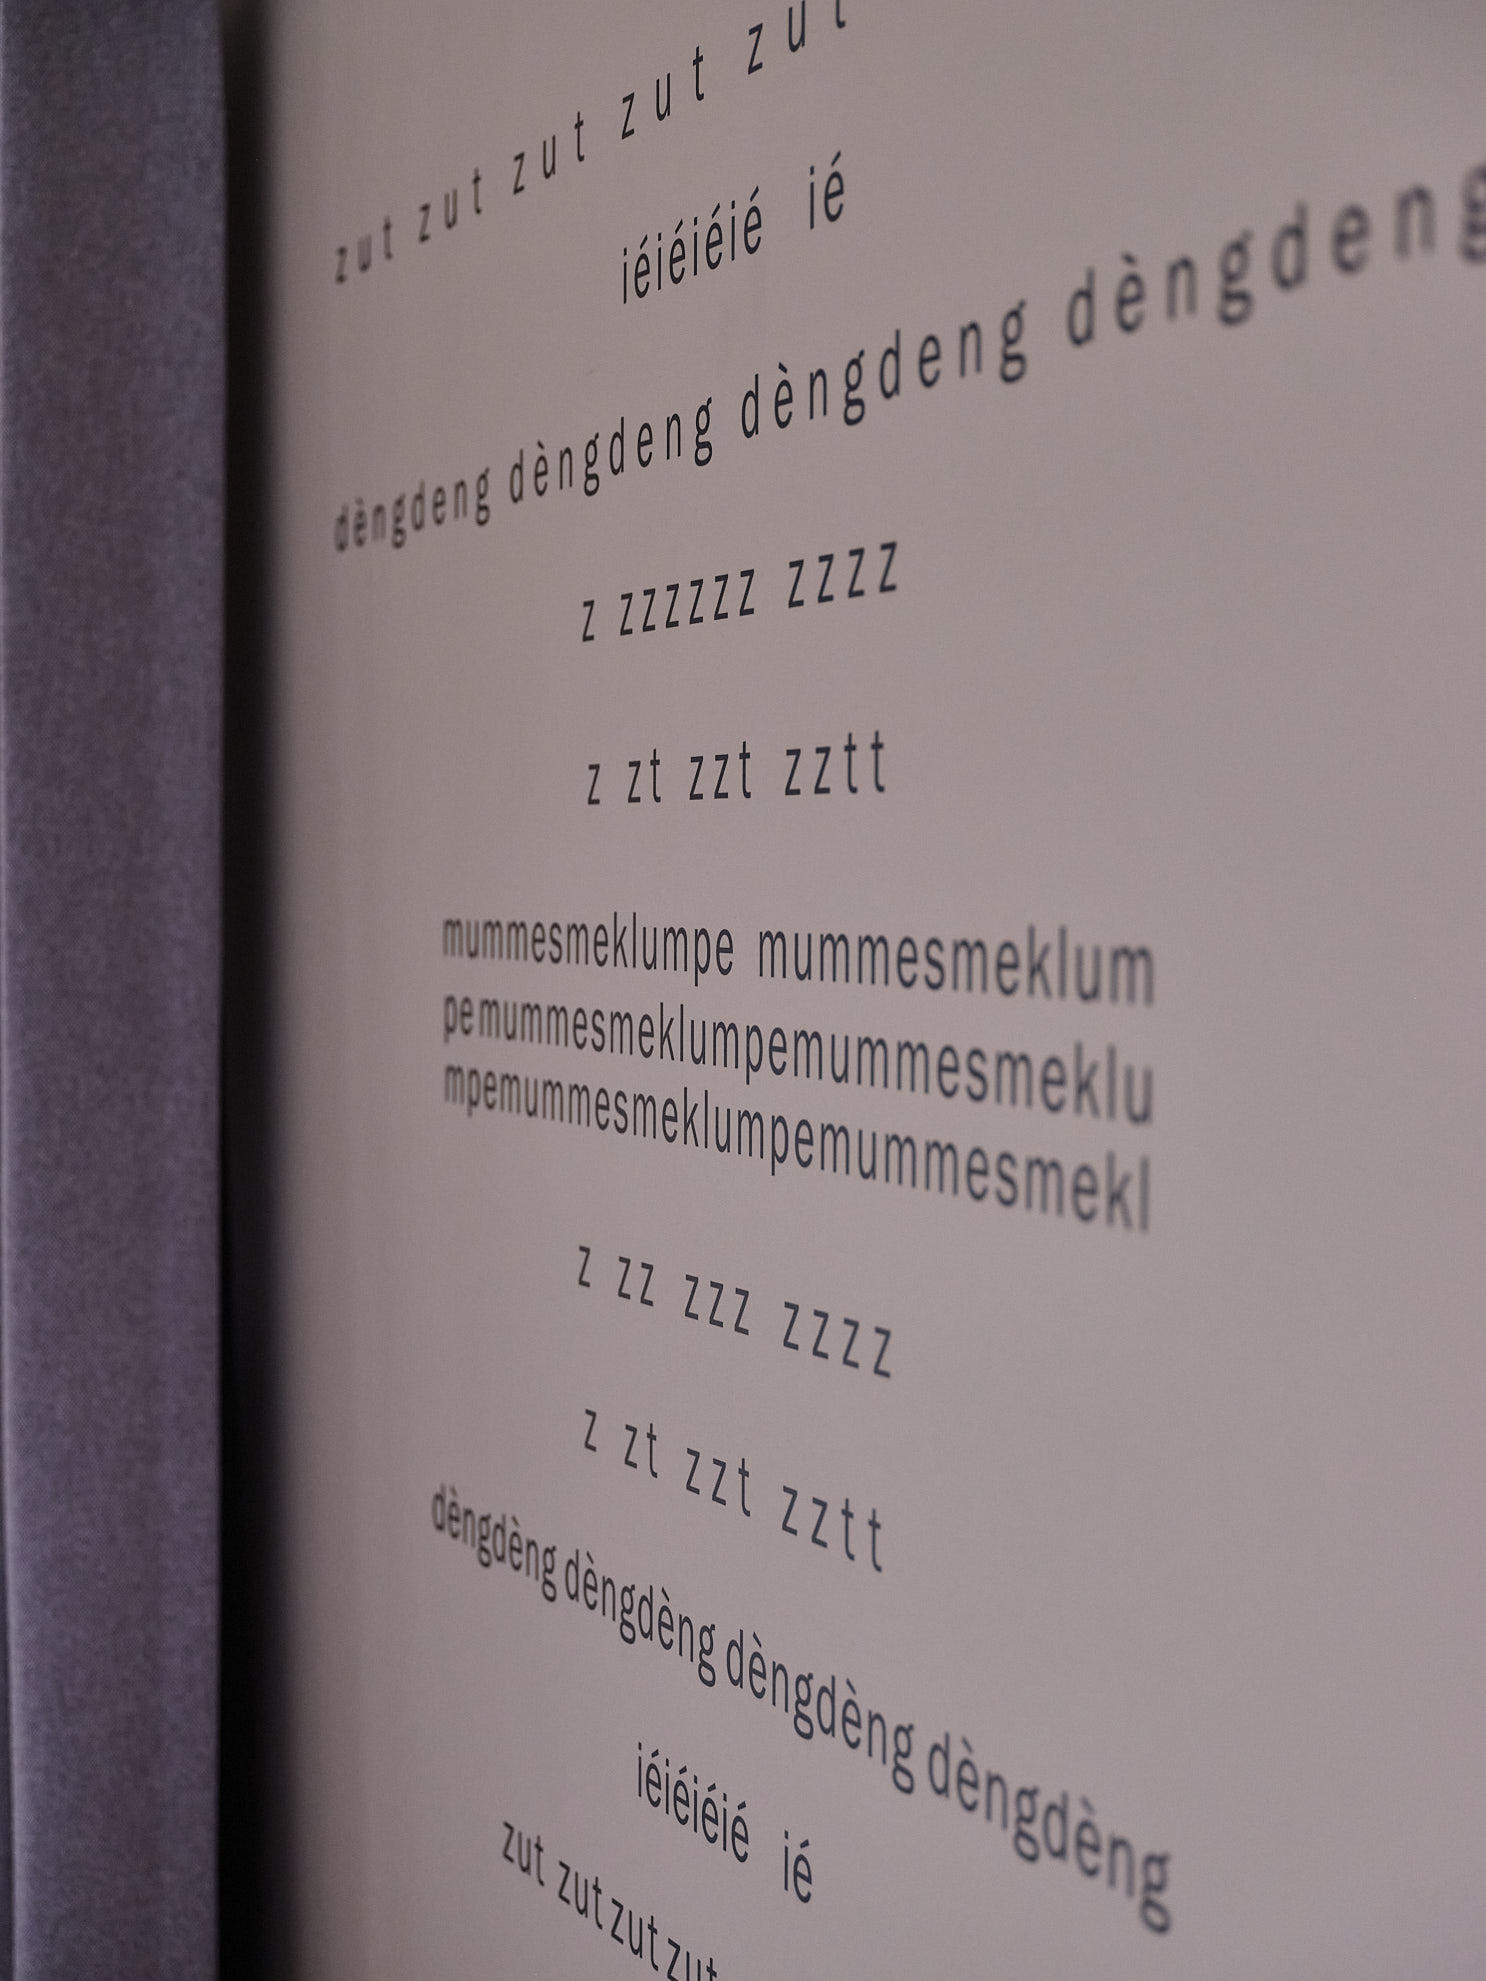 zut zut zut zut zut
iéiéiéié ié
dèngdeng dèngdeng dèngdeng dèngdeng
z zzzzzz zzzz
z zt zzt zztt
mummesmeklumpe mummesmeklum
pemummesmeklumpemummesmeklu
mpemummesmeklumpemummesmekl
z zz zzz zzzz
z zt zzt zztt
dèngdèng dèngdèng dèngdèng dèngdèng
iéiéiéié ié
zut zut zut zut